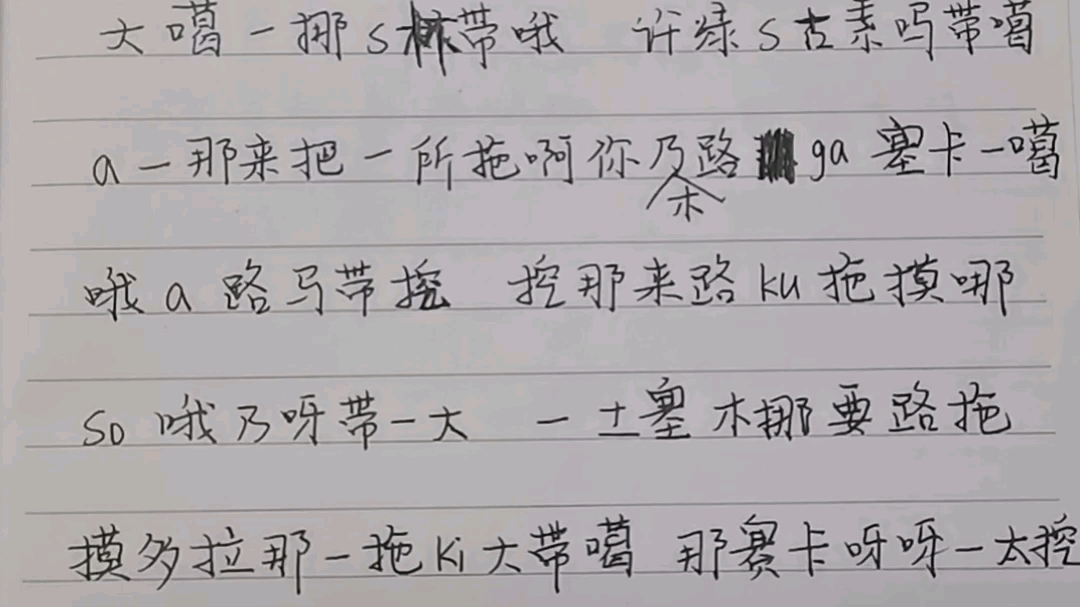 大噶一挪s林带哦 许绿s古素吗带噶
a一那来把一所拖啊你乃路ga塞卡一噶
木
哦a路马带挖 挖那来路ku拖摸哪
so哦乃呀带一大 一土塞木挪要路拖
摸多拉那一拖ki大带噶 那赛卡呀呀一太挖